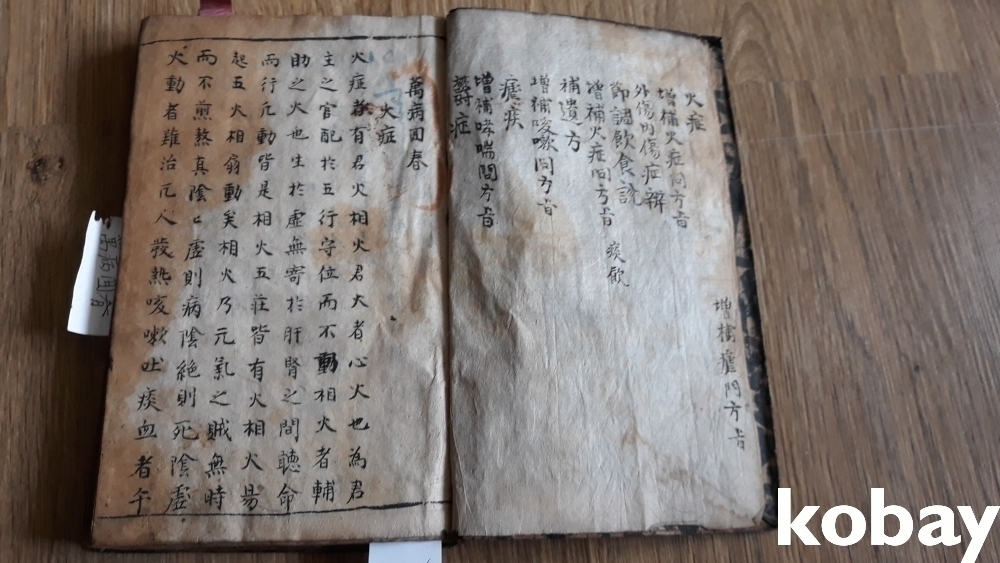 火症
增補火症門方旨
外傷內傷症辨
節調飲食說
增補火症門方旨 痰飲
補遺方
增補咳嗽門方旨
瘧疾
增補哮喘門方旨
鬱症
增補瘧門方旨
萬病回春
火症
火症者有君火相火君火者心火也為君
主之官配於五行守位而不動相火者輔
助之火也生於虛無寄於肝腎之間聽命
而行凡動皆是相火五莊皆有火相火易
起五火相扇動矣相火乃元氣之賊無時
而不煎熬真陰〻虛則病陰絕則死陰虛
火動者難治凡人發熱咳嗽吐痰血者午
萬病回春
kobay